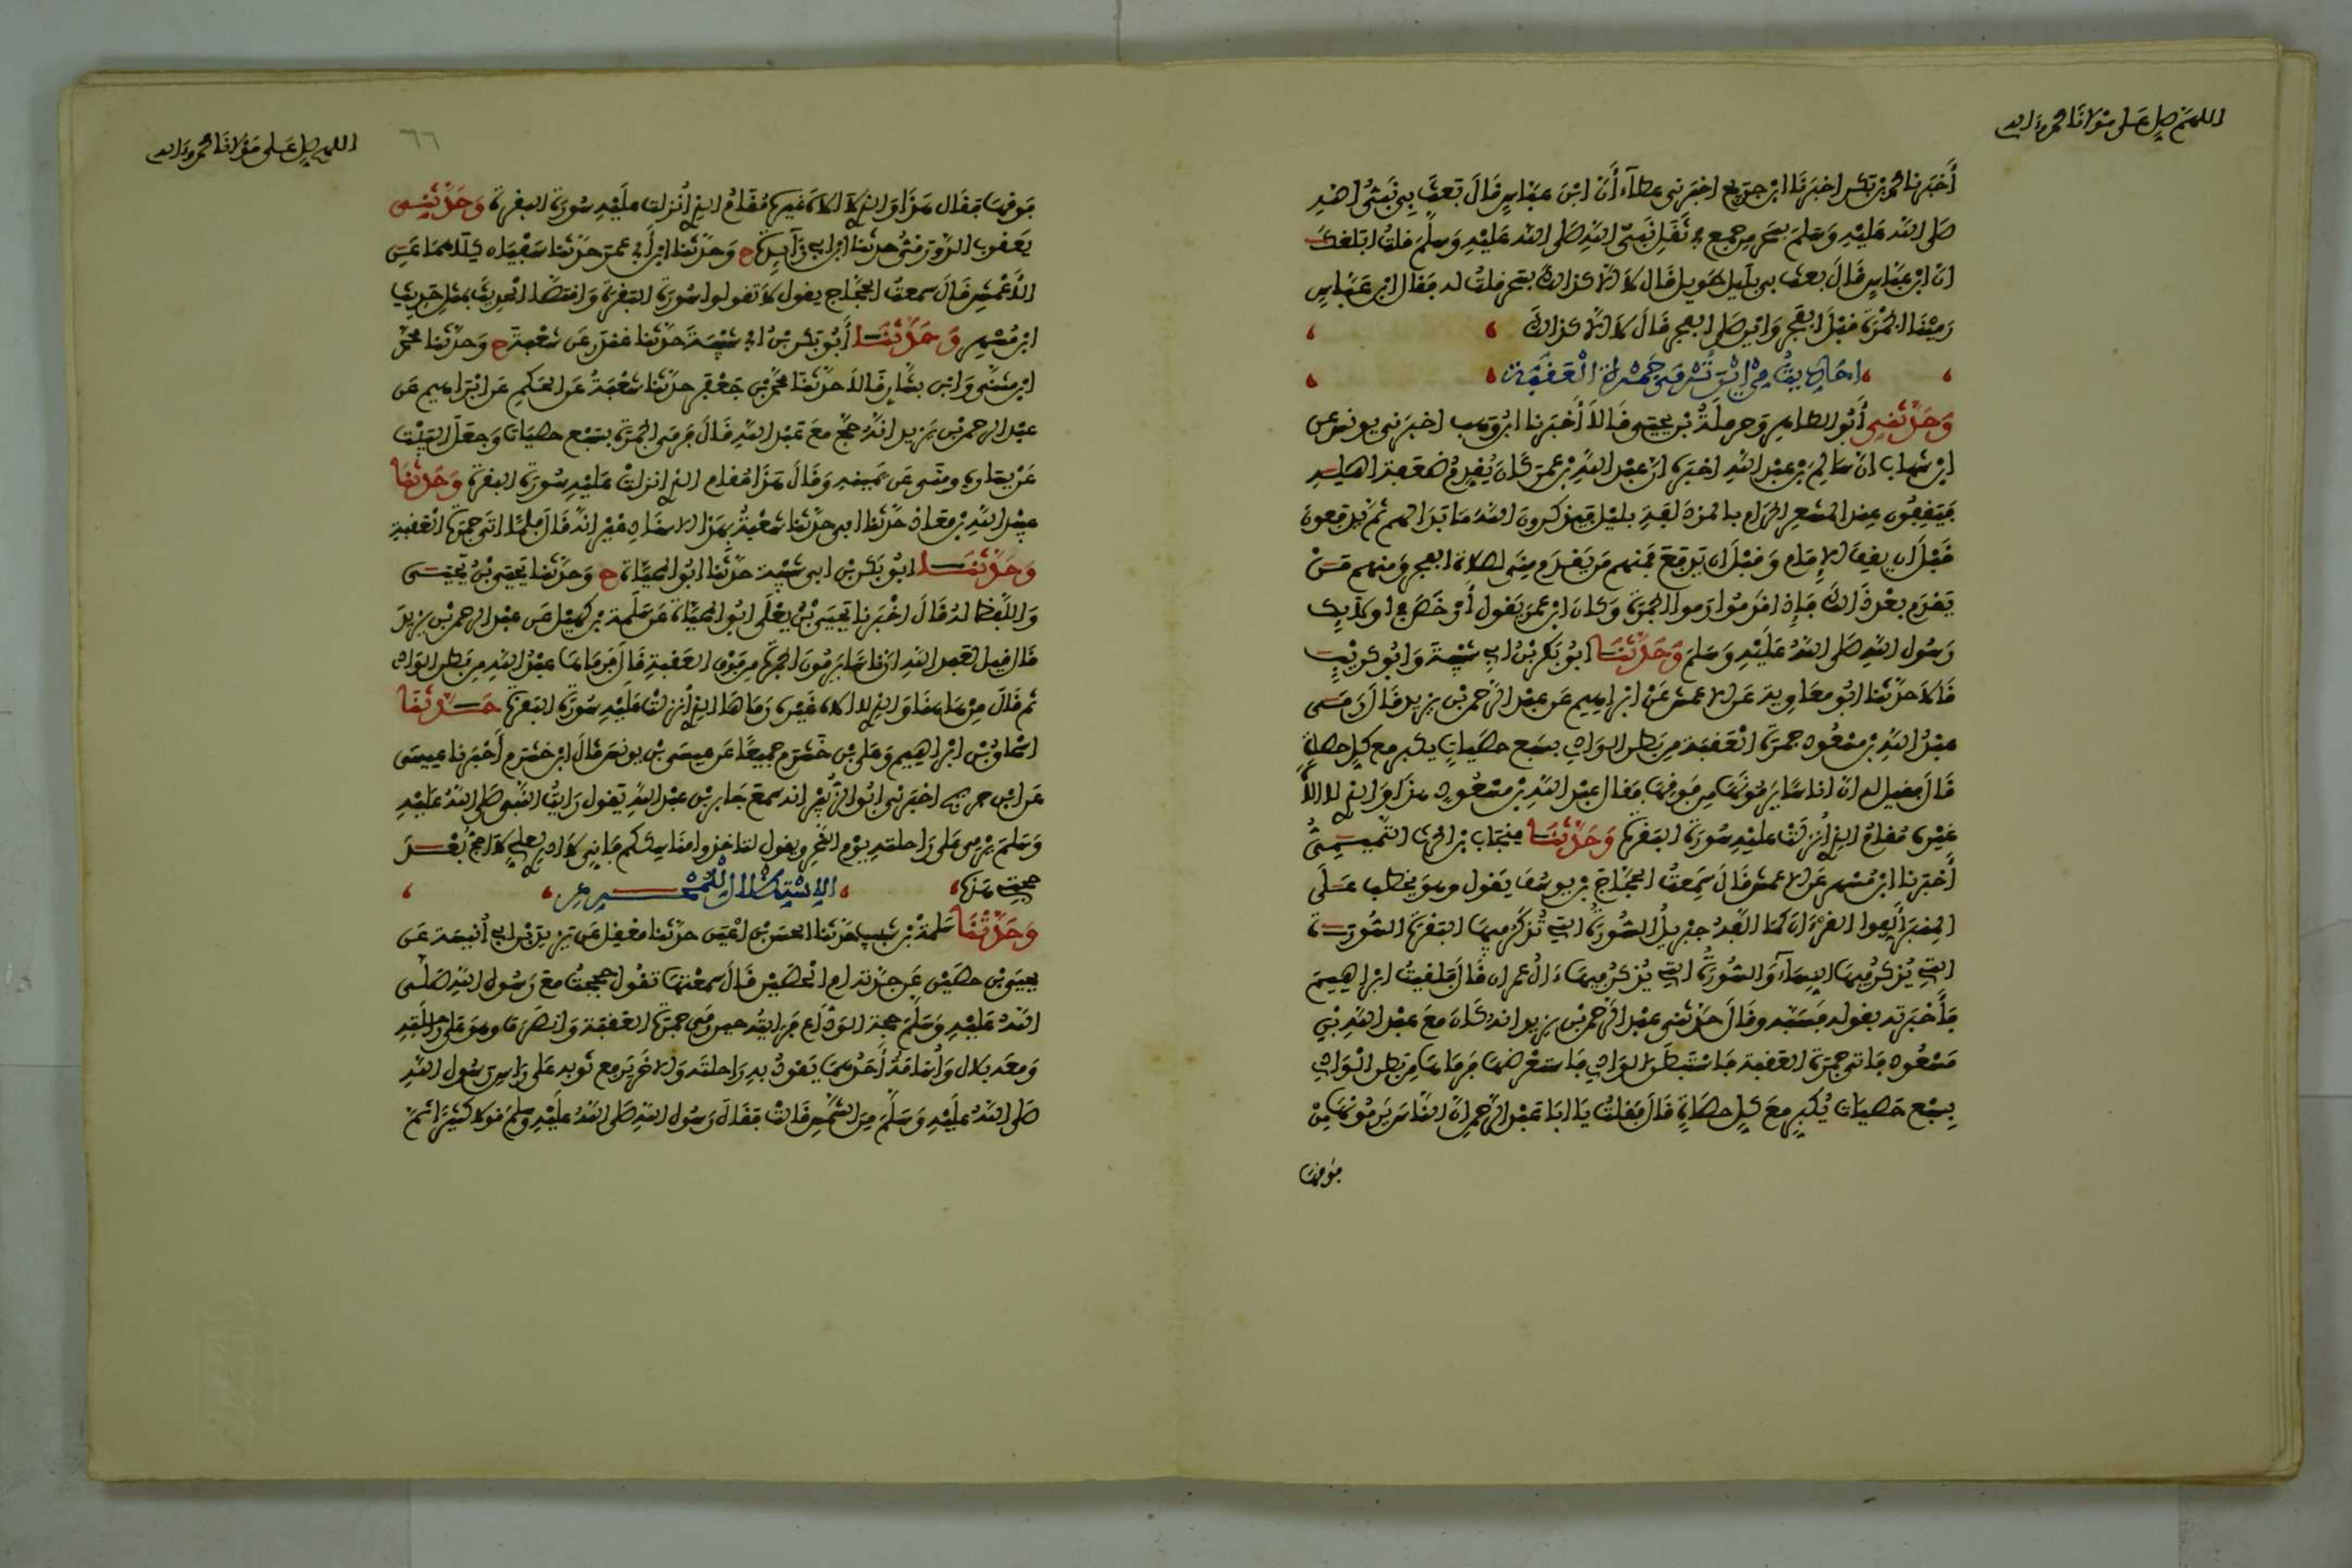 اللهم صل على مولانا محمد وءاله
أخبرنا محمد بن بكر اخبرنا ابن جريج اخبرني عطاء أن ابن عباس قال بعث بي نبي الله
صلى الله عليه وسلم بسحر من جمع في ثقل نبي الله صلى الله عليه وسلم قلت ابلغك
ان ابن عباس قال بعث بي بليل طويل قال لا الا كذلك بسحر قلت له فقال ابن عباس
رمينا الجمرة قبل الفجر واين صلى الفجر قال لا الا كذلك
من اين ترمى جمرة العقبة
وحدثني أبو الطاهر وحرملة بن يحيى قالا أخبرنا ابن وهب اخبرني يونس عن
ابن شهاب ان سالم بن عبد الله اخبره ان عبد الله بن عمر كان يقدم ضعفة اهله
فيقفون عند المشعر الحرام بالمزدلفة بليل فيذكرون الله ما بدا لهم ثم يدفعون
قبل ان يقف الإمام وقبل ان يدفع فمنهم من يقدم منى لصلاة الفجر ومنهم من
يقدم بعد ذلك فإذا قدموا رموا الجمرة وكان ابن عمر يقول أرخص في اولئك
رسول الله صلى الله عليه وسلم وحدثنا ابو بكر بن ابي شيبة وابو كريب
قالا حدثنا ابو معاوية عن الاعمش عن ابراهيم عن عبد الرحمن بن يزيد قال رمى
عبد الله بن مسعود جمرة العقبة من بطن الوادي بسبع حصيات يكبر مع كل حصاة
قال فقيل له ان اناسا يرمونها من فوقها فقال عبد الله بن مسعود هذا والذي لا اله
غيره مقام الذي أنزلت عليه سورة البقرة وحدثنا منجاب بن الحرث التميمي
أخبرنا ابن مسهر عن الاعمش قال سمعت الحجاج بن يوسف يقول وهو يخطب على
المنبر ألفوا القرءان كما ألفه جبريل السورة التي تذكر فيها البقرة السورة
التي يذكر فيها النساء والسورة التي يذكر فيها ءال عمران قال فلقيت ابراهيم
فأخبرته بقوله فسبه وقال حدثني عبد الرحمن بن يزيد انه كان مع عبد الله بن
مسعود فاتى جمرة العقبة فاستبطن الوادي فاستعرضها فرماها من بطن الوادي
بسبع حصيات يكبر مع كل حصاة قال فقلت يا ابا عبد الرحمن ان الناس يرمونها من
فوقها
اللهم صل على مولانا محمد وءاله
٦٦
فوقها فقال هذا والذي لا اله غيره مقام الذي أنزلت عليه سورة البقرة وحدثني
يعقوب الدورقي حدثنا ابن ابي زائدة ح وحدثنا ابن أبي عمر حدثنا سفيان كلاهما عن
الأعمش قال سمعت الحجاج يقول لا تقولوا سورة البقرة واقتصا الحديث بمثل حديث
ابن مسهر وحدثنا أبو بكر بن ابي شيبة حدثنا غندر عن شعبة ح وحدثنا محمد
ابن مثنى وابن بشار قالا حدثنا محمد بن جعفر حدثنا شعبة عن الحكم عن ابراهيم عن
عبد الرحمن بن يزيد انه حج مع عبد الله قال فرمى الجمرة بسبع حصيات وجعل البيت
عن يساره ومنى عن يمينه وقال هذا مقام الذي انزلت عليه سورة البقرة وحدثنا
عبيد الله بن معاذ حدثنا ابي حدثنا شعبة بهذا الاسناد غير انه قال فلما اتى جمرة العقبة
وحدثنا ابو بكر بن ابي شيبة حدثنا ابو المحياة ح وحدثنا يحيى بن يحيى
واللفظ له قال اخبرنا يحيى بن يعلى ابو المحياة عن سلمة بن كهيل عن عبد الرحمن بن يزيد
قال قيل لعبد الله ان ناسا يرمون الجمرة من فوق العقبة قال فرماها عبد الله من بطن الوادي
ثم قال من هاهنا والذي لا اله غيره رماها الذي أنزلت عليه سورة البقرة حدثنا
اسحاق بن ابراهيم وعلي بن خشرم جميعا عن عيسى بن يونس قال ابن خشرم أخبرنا عيسى
عن ابن جريج اخبرني ابو الزبير انه سمع جابر بن عبد الله يقول رايت النبي صلى الله عليه
وسلم يرمي على راحلته يوم النحر ويقول لتاخذوا مناسككم فاني لا ادري لعلي لا احج بعد
حجتي هذه
وحدثنا سلمة بن شبيب حدثنا الحسن بن اعين حدثنا معقل عن زيد بن ابي أنيسة عن
يحيى بن حصين عن جدته ام الحصين قال سمعتها تقول حججت مع رسول الله صلى
الله عليه وسلم حجة الوداع فرايته حين رمى جمرة العقبة وانصرف وهو على راحلته
ومعه بلال وأسامة أحدهما يقود به راحلته والاخر يرفع ثوبه على راس رسول الله
صلى الله عليه وسلم من الشمس قالت فقال رسول الله صلى الله عليه وسلم قولا كثيرا ثم